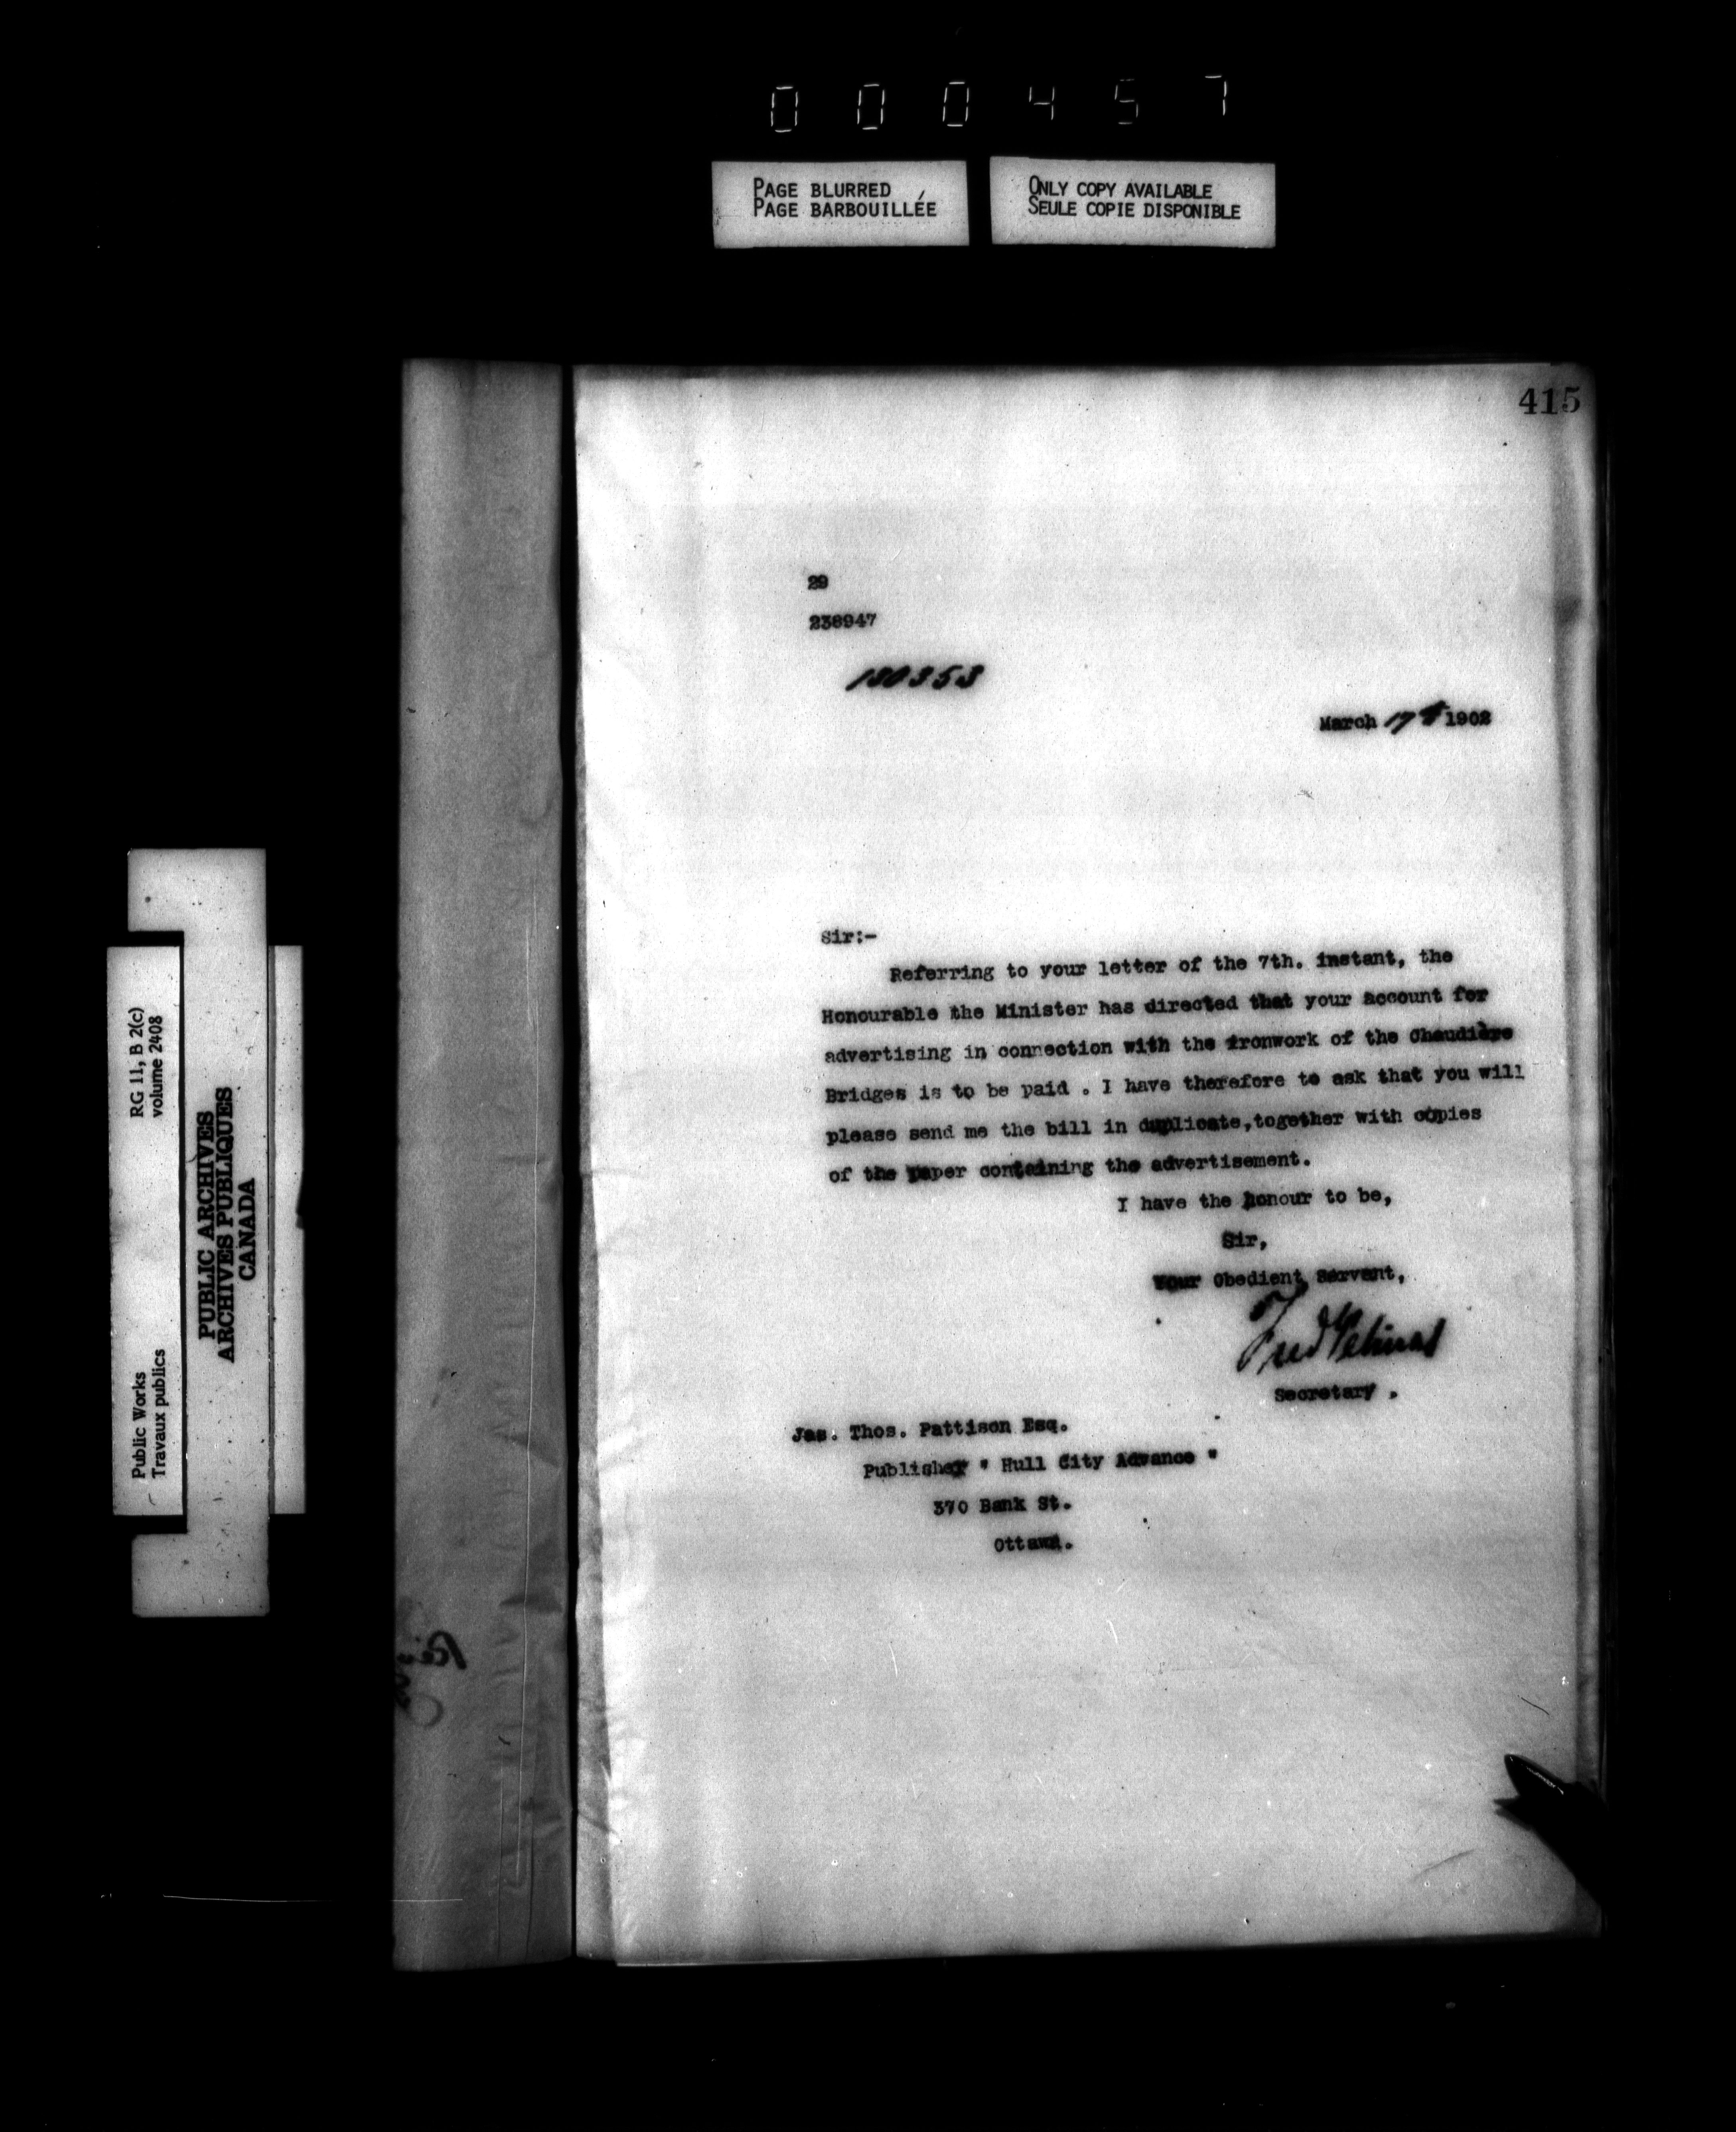 000457
PAGE BLURRED
PAGE BARBOUILLÉE
ONLY COPY AVAILABLE
SEULE COPIE DISPONIBLE
415
29
238947
130353
March 17th 1902
Sir:-
Referring to your letter of the 7th. instant, the
Honourable the Minister has directed that your account for
advertising in connection with the ironwork of the Chaudière
Bridges is to be paid . I have therefore to ask that you will
please send me the bill in duplicate,together with copies
of the paper containing the advertisement.
I have the honour to be,
Sir,
Your Obedient Servant,
Fred Gélinas
Secretary .
Jas. Thos. Pattison Esq.
Publisher " Hull City Advance "
370 Bank St.
Ottawa.
RG 11, B 2(c)
volume 2408
PUBLIC ARCHIVES
ARCHIVES PUBLIQUES
CANADA
Public Works
Travaux publics